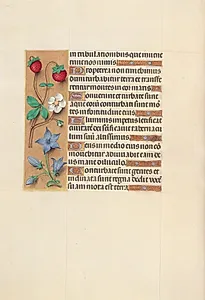 in tribulationibus que invene
runt nos nimis
Propterea non timebimus
dum turbabitur terra et transfe
rentur montes in cor maris
Sonuerunt et turbate sunt
aque eorum conturbati sunt mō
tes in fortitudine eius
Fluminis impetus letificat
civitatē dei sanctificavit taberna
culum suū altissimus
Deus in medio eius non cō
movebitur adiuvabit eam de
us mane diluculo
Conturbate sunt gentes et
inclinata sunt regna dedit voce
suam mota est terra